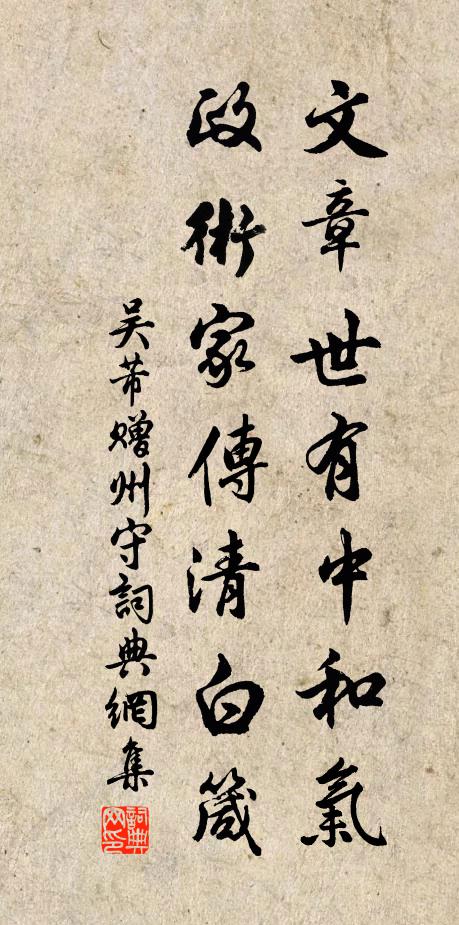 文章世有中和氣
政術家傳清白箴
吴芾贈州守詞典網集
詞典網印